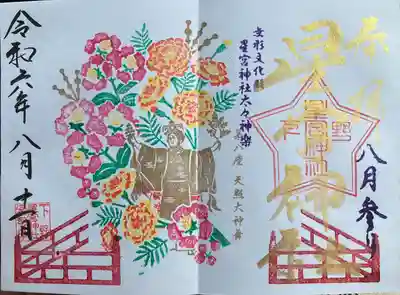 奉拝
星宮神社
下野
星宮神社
八月参り
無形文化財
星宮神社太々神楽
天照大神舞
令和六年八月十一日